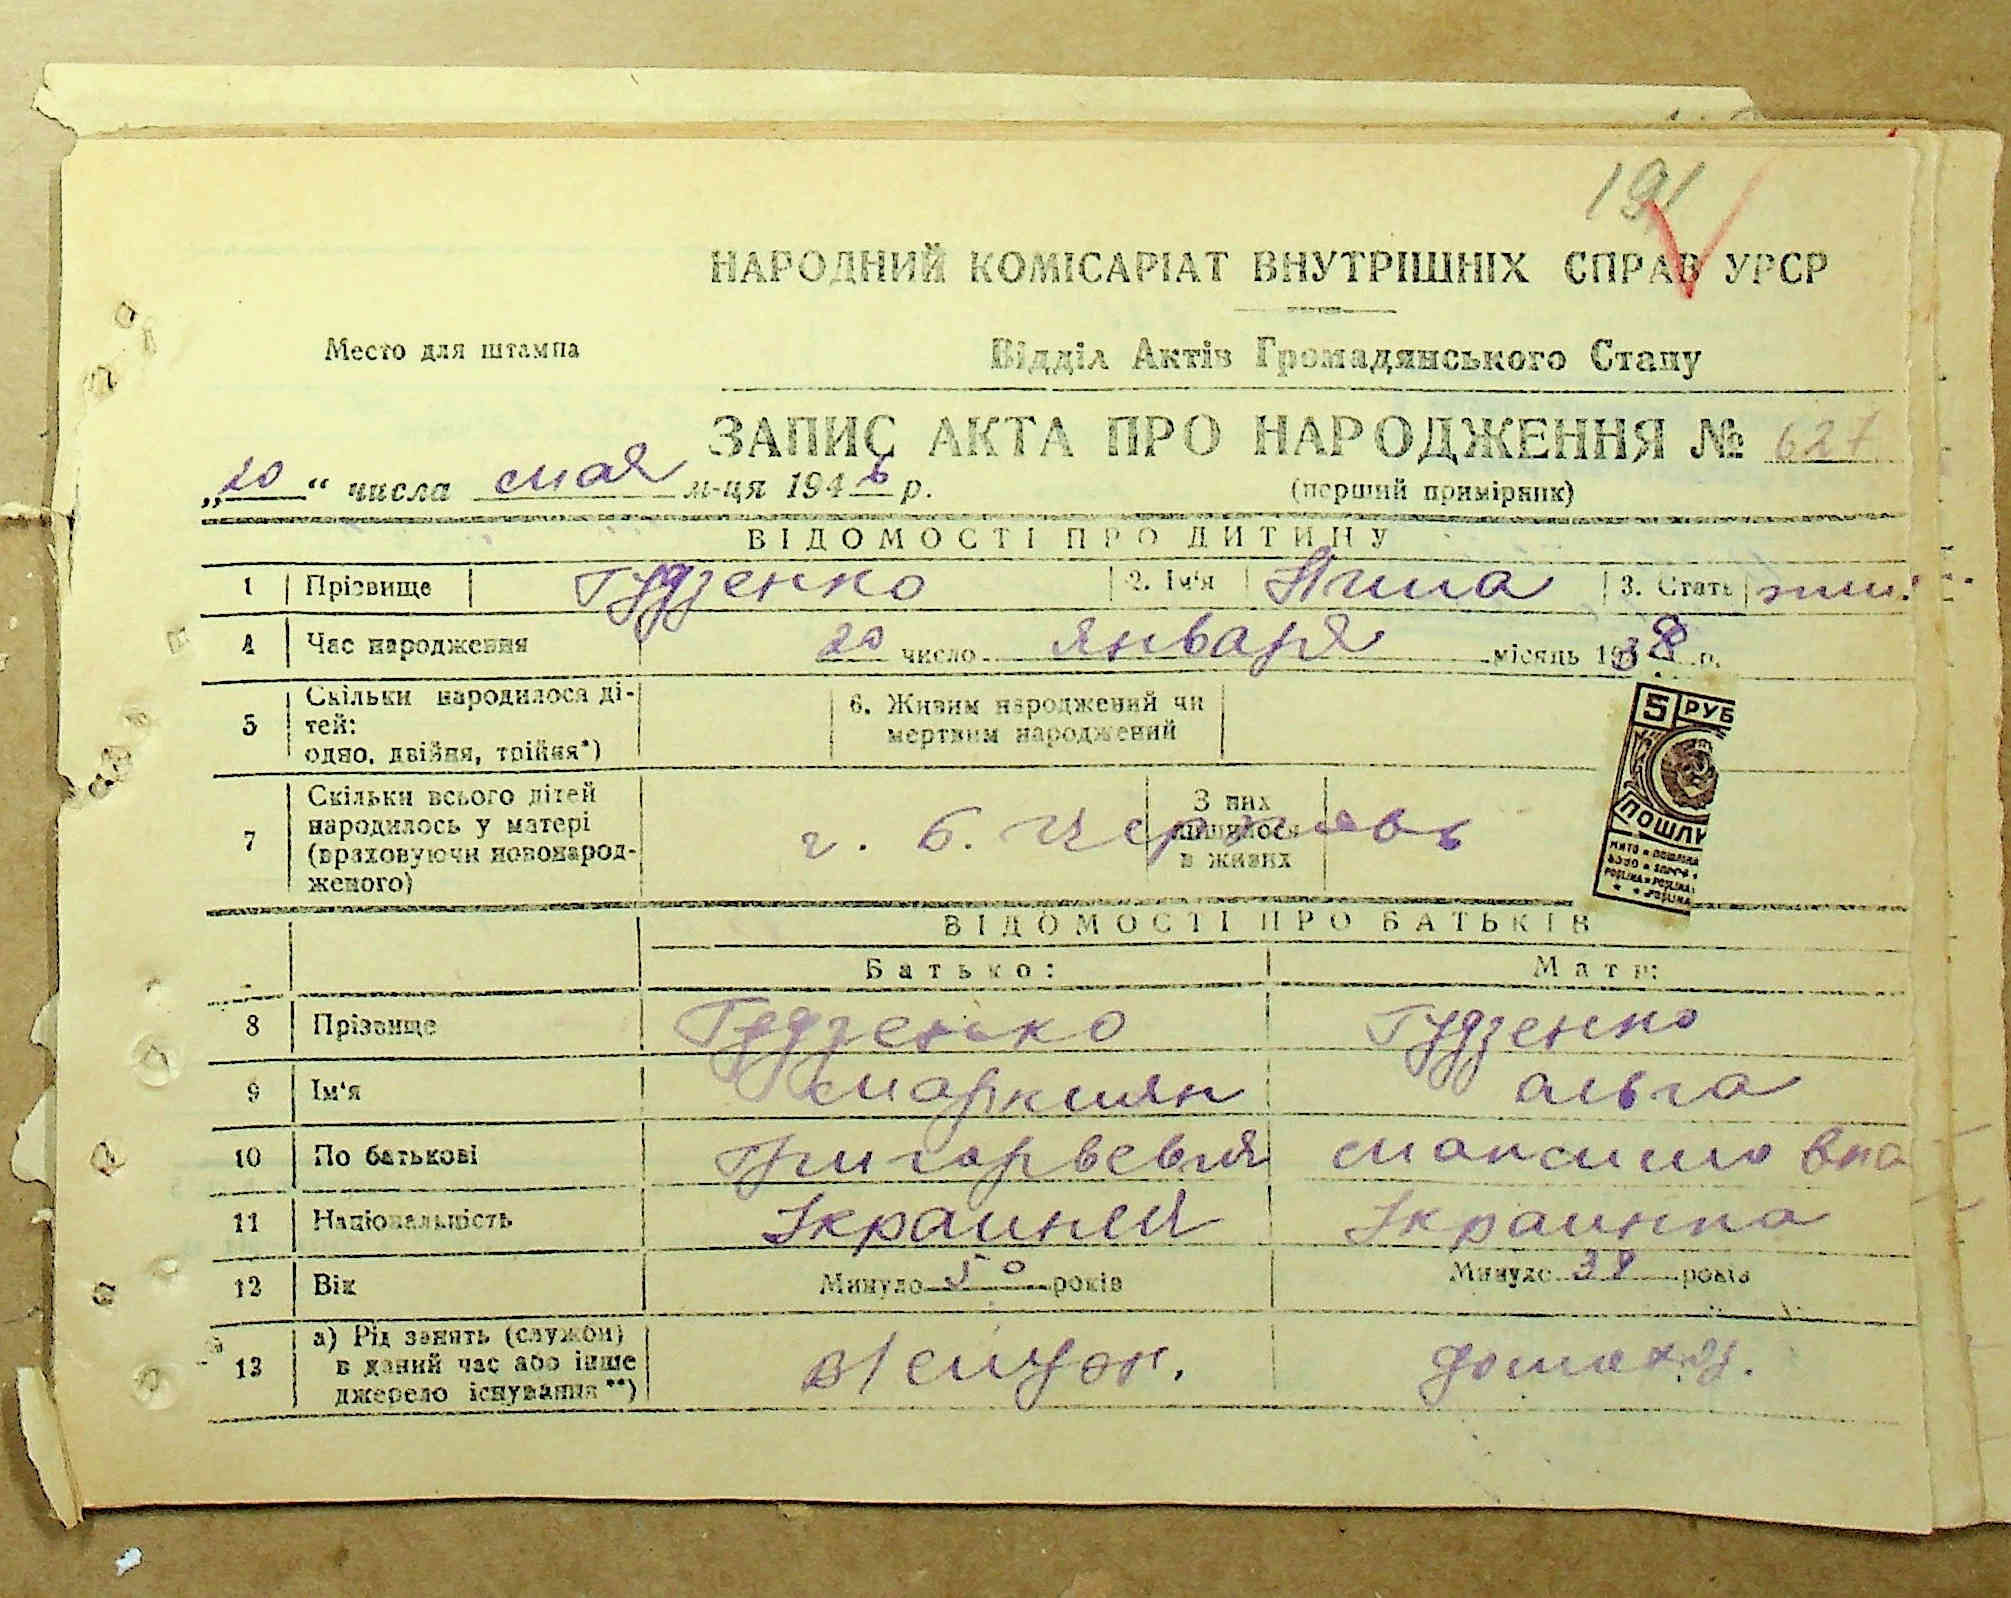 191
НАРОДНИЙ КОМІСАРІАТ ВНУТРІШНІХ СПРАВ УРСР
Место для штампа
Відділ Актів Громадянського Стану
ЗАПИС АКТА ПРО НАРОДЖЕННЯ № 627
„20“ числа мая м-ця 1946 р.
(перший примірник)
ВІДОМОСТІ ПРО ДИТИНУ
1 Прізвище Гудзенко 2. Ім'я Нина 3. Стать жен.
4 Час народження 20 число января місяць 1938 р.
5 Скільки народилося ді-
тей:
одно, двійня, трійня*)
6. Живим народжений чи
мертвим народжений
5 РУБ
ПОШЛИ
7 Скільки всього дітей
народилось у матері
(враховуючи новонарод-
женого)
З них
лишилося
в живих
г. Б. Церковь
ВІДОМОСТІ ПРО БАТЬКІВ
Батько: Мати:
8 Прізвище Гудзенко Гудзенко
9 Ім'я Маркиян Ольга
10 По батькові Григорьевич Максимовна
11 Національність Украинец Украинка
12 Вік Минуло 50 років Минуло 38 років
13 а) Рід занять (служби)
в даний час або інше
джерело існування**)
домохоз.